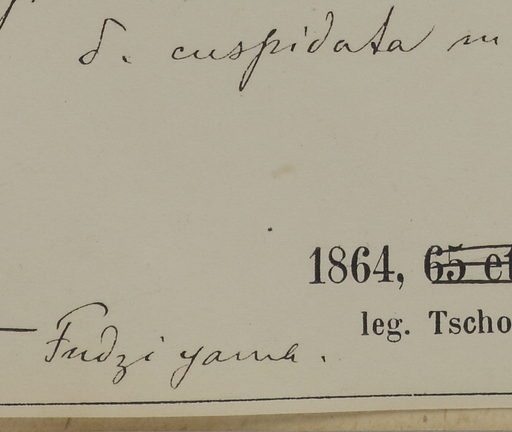 δ. cuspidata m
1864, 65 et
leg. Tscho
Fudzi yama.